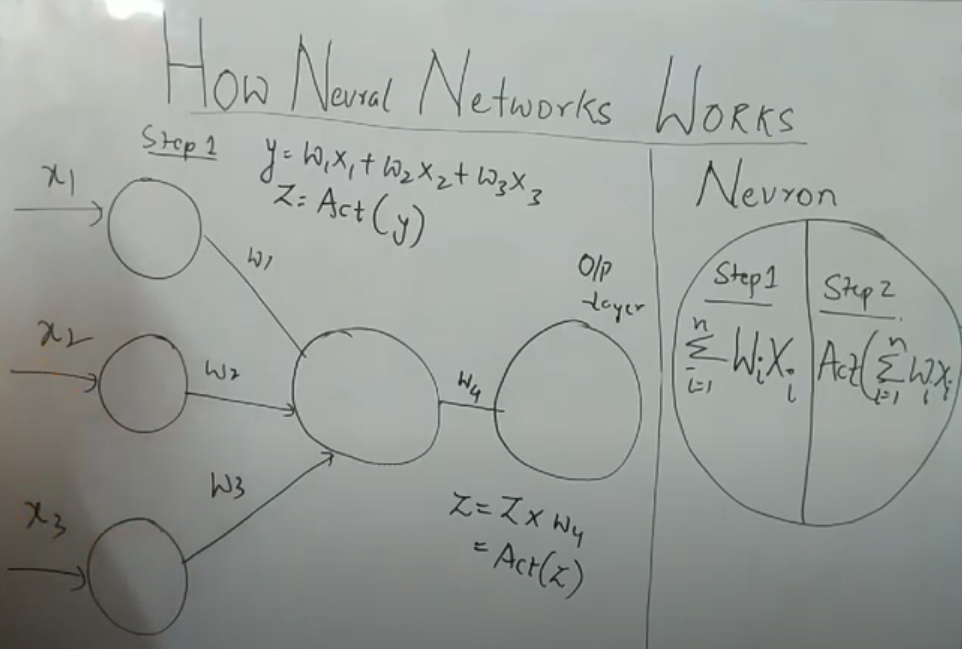 How Neural Networks Works
Step 1
y = w₁x₁ + w₂x₂ + w₃x₃
z = Act(y)
x₁
w₁
x₂
w₂
x₃
w₃
w₄
O/p
Layer
z = z × w₄
= Act(z)
Neuron
Step 1
n
∑ WᵢXᵢ
i=1
Step 2
n
Act(∑ WᵢXᵢ
i=1